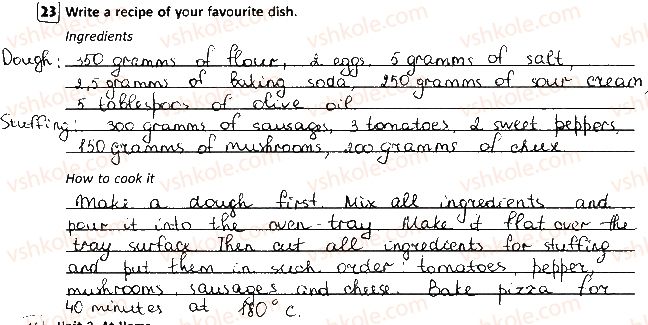 23 Write a recipe of your favourite dish.
Ingredients
Dough: 350 gramms of flour, 2 eggs, 5 gramms of salt,
2,5 gramms of baking soda, 250 gramms of sour cream,
5 tablespoos of olive oil
Stuffing: 300 gramms of sausages, 3 tomatoes, 2 sweet peppers,
150 gramms of mushrooms, 200 gramms of cheese
How to cook it
Make a dough first. Mix all ingredients and
pour it into the oven-tray Make it flat over the
tray surface. Then cut all ingredients for stuffing
and put them in such order: tomatoes, pepper,
mushrooms, sausages and cheese. Bake pizza for
40 minutes at 180° C.